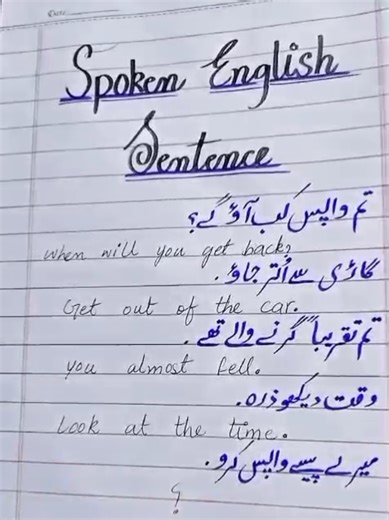 Date:
Spoken English
Sentence
تم واپس کب آؤ گے؟
when will you get back?
گاڑی سے اُتر جاؤ۔
Get out of the car.
تم تقریباً گرنے والے تھے۔
you almost fell.
وقت دیکھو ذرہ۔
Look at the time.
میرے پیسے واپس کرو۔
؟